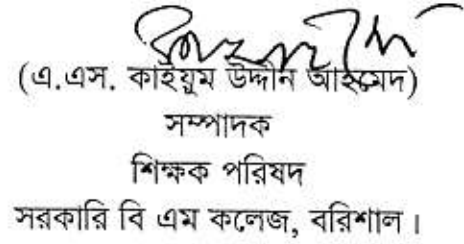 (এ.এস. কাইয়ুম উদ্দীন আহমেদ)
সম্পাদক
শিক্ষক পরিষদ
সরকারি বি এম কলেজ, বরিশাল।